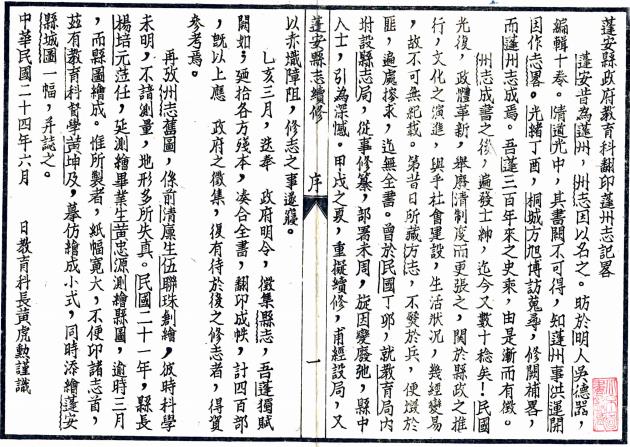 蓬安縣政府教育科翻印蓬州志記畧
蓬安昔為蓬州，州志因以名之。昉於明人吳德器，
編輯十卷。清道光中，其書闕不可得，知蓬州事洪運開
因作志畧。光緒丁酉，桐城方旭博訪蒐尋，修闕補畧，
而蓬州志成焉。吾蓬三百年來之史乘，由是漸而有徵。
州志成書之後，遍發士紳，迄今又數十稔矣！民國
光復，政體革新，舉厝清制度而更張之，關於縣政之推
行，文化之演進，與乎社會建設，生活狀況，幾經變易
，故不可無紀載。第昔日所藏方志，不燹於兵，便燬於
匪，遍處搜求，迄無全書。曾於民國丁卯，就教育局內
坿設縣志局，從事修纂，部署未周，旋因變廢弛，縣中
人士，引為深憾。甲戌之夏，重擬續修，甫經設局，又
蓬安縣志續修
序
一
以赤熾障阻，修志之事遄寢。
乙亥三月，迭奉 政府明令，徵集縣志，吾蓬獨賦
闕如；廼拾各方殘本，凑合全書，翻印成帙，計四百部
，旣以上應 政府之徵集，復有待於後之修志者，得資
參考焉。
再攷州志舊圖，係前清廩生伍聯珠創繪，彼時科學
未明，不諳測量，地形多所失真。民國二十一年，縣長
楊培元蒞任，延測繪畢業生黃忠源測繪縣圖，逾時三月
，而縣圖繪成。惟所製者，紙幅寬大，不便印諸志首，
茲有教育科督學黃坤及，摹仿繪成小式，同時添繪蓬安
縣城圖一幅，并誌之。
中華民國二十四年六月 日教育科長黃虎勲謹識